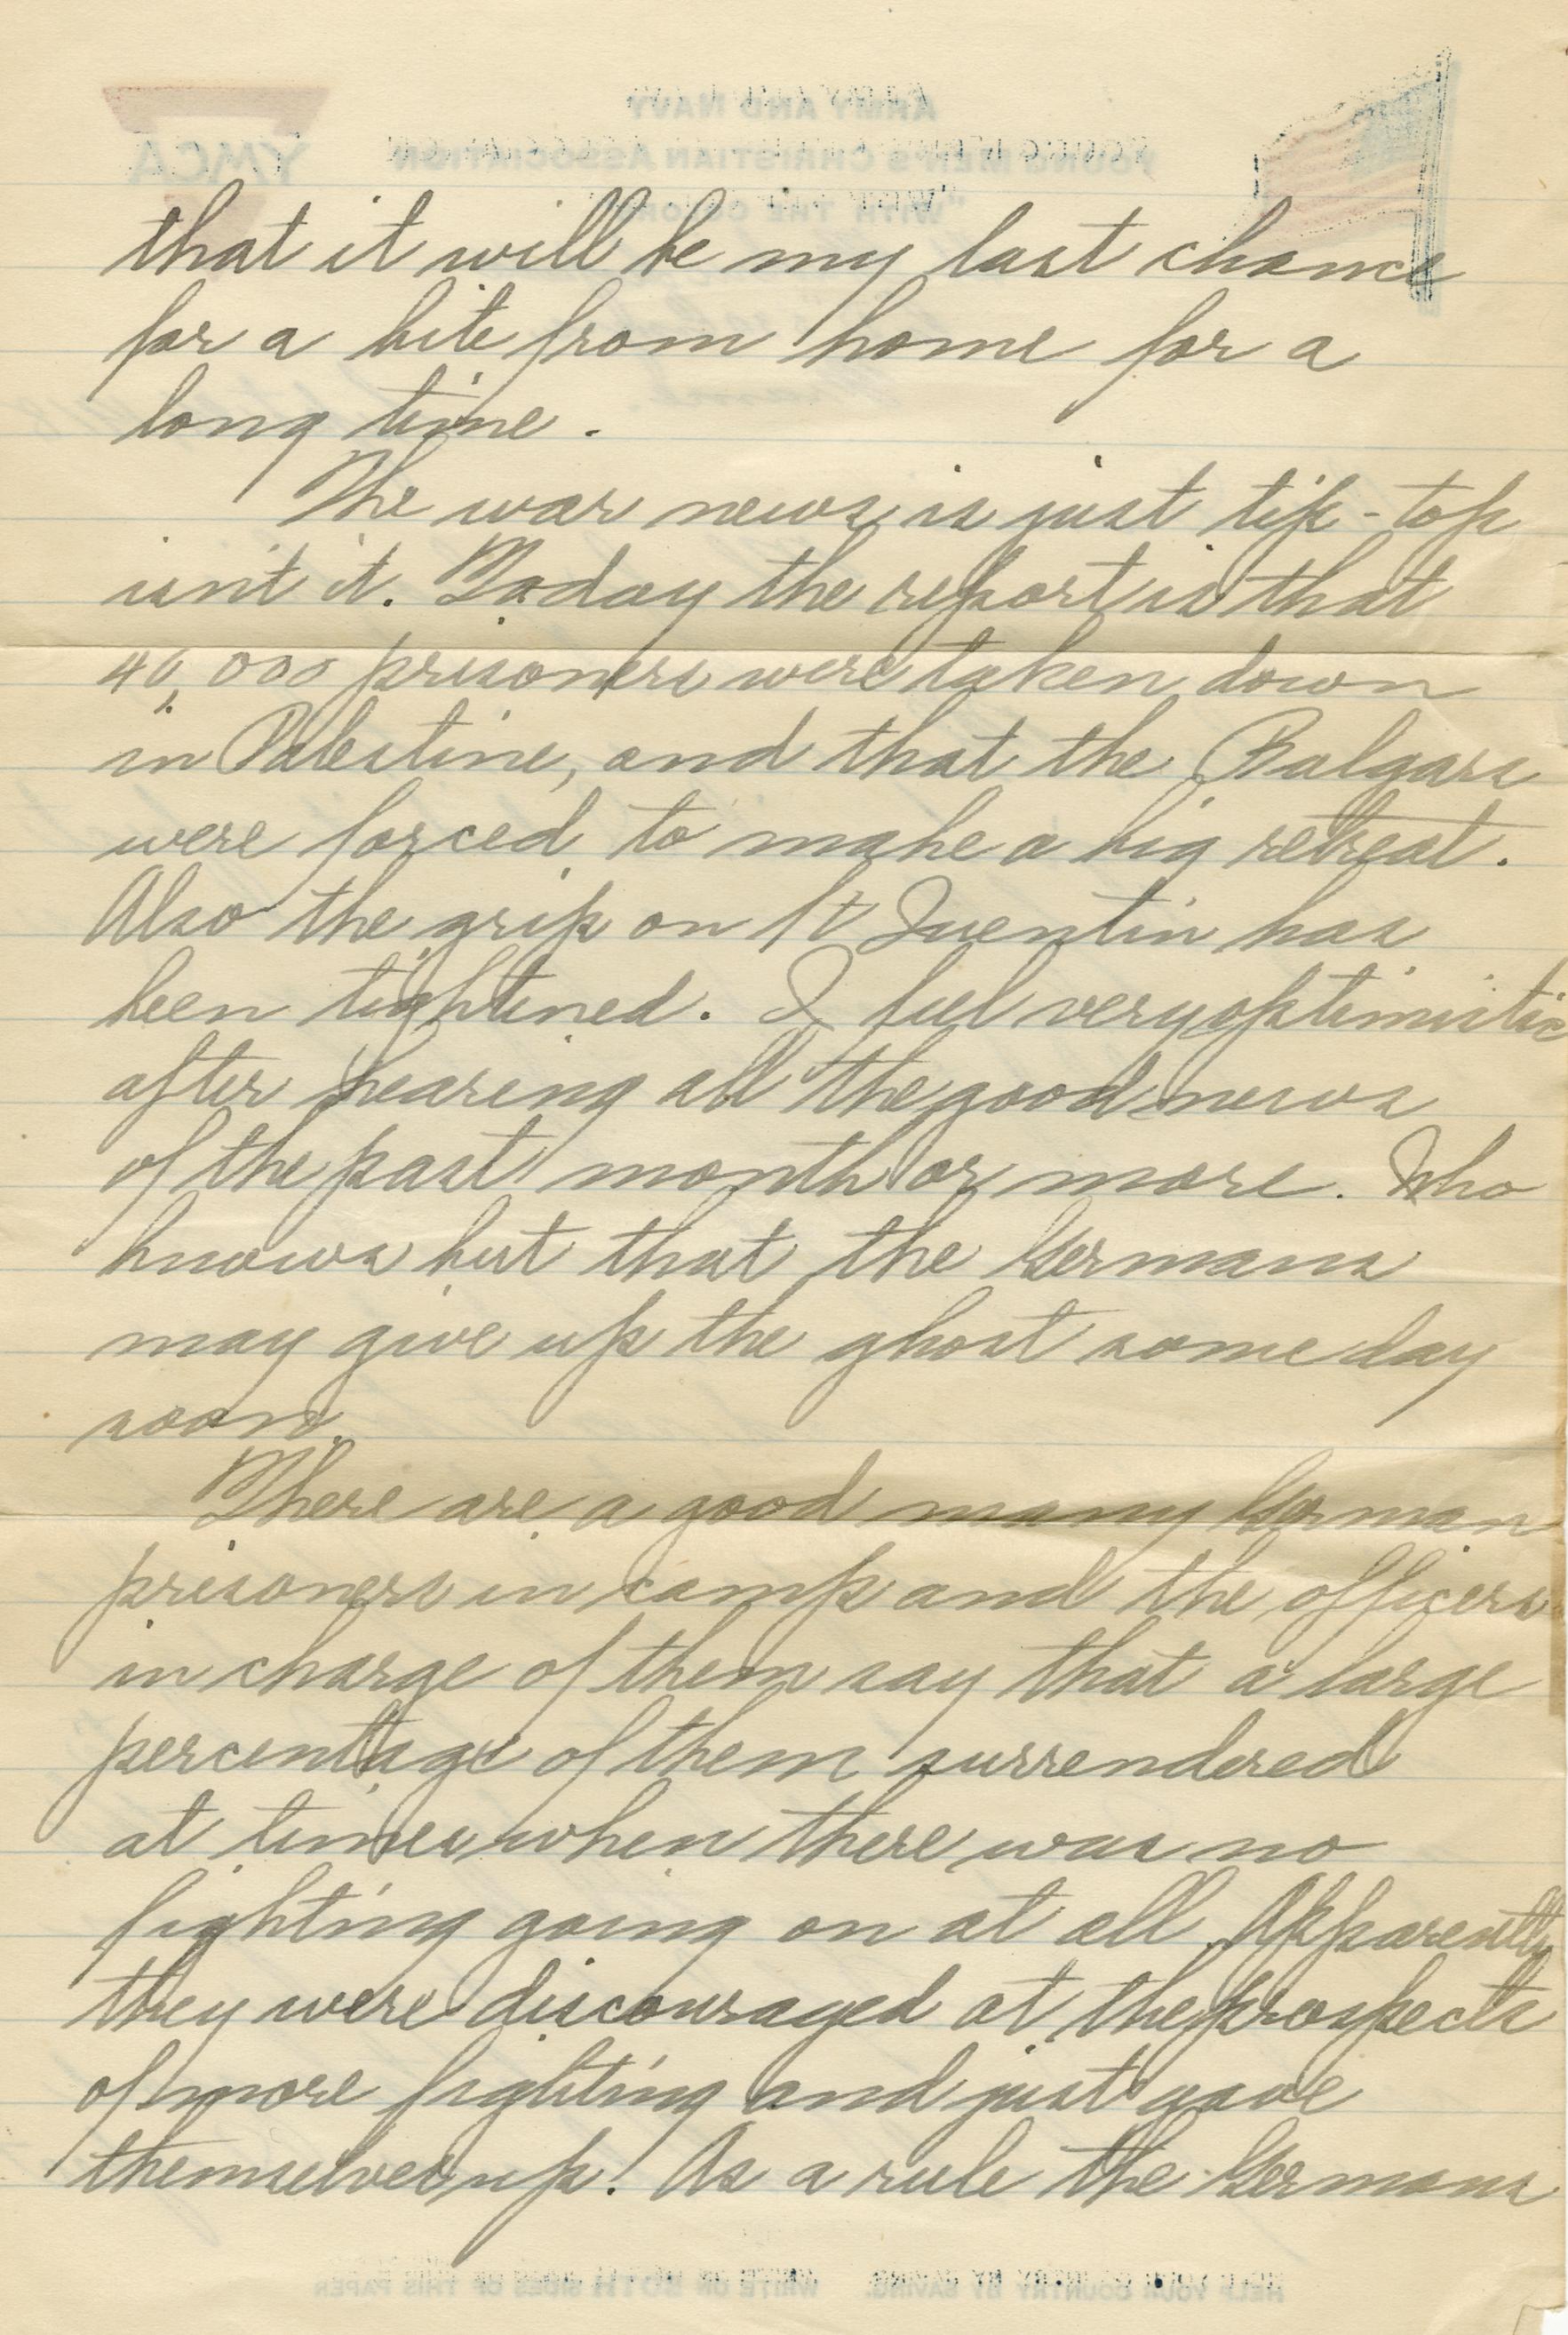 ARMY AND NAVY
YOUNG MEN'S CHRISTIAN ASSOCIATION
"WITH THE COLORS"
YMCA
that it will be my last chance
for a bite from home for a
long time.
The war news is just tip-top
isnt it. Today the report is that
40,000 prisoners were taken down
in Palestine, and that the Bulgars
were forced to make a big retreat.
Also the grip on St Quentin has
been tightened. I feel very optimistic
after hearing all the good news
of the past month or more. Who
knows but that the Germans
may give up the ghost some day
soon.
There are a good many German
prisoners in camp and the officers
in charge of them say that a large
percentage of them surrendered
at times when there was no
fighting going on at all. Apparently
they were discouraged at the prospects
of more fighting and just gave
themselves up! As a rule the Germans
HELP YOUR COUNTRY BY SAVING. WRITE ON BOTH SIDES OF THIS PAPER